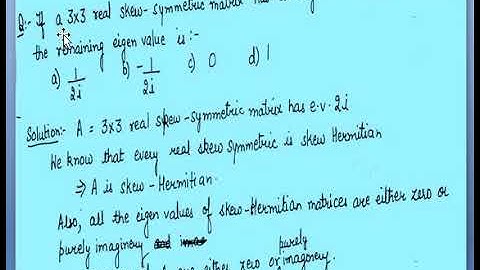 Q:- If a 3x3 real skew-symmetric matrix has
the remaining eigen value is :-
a) 1/2i b) -1/2i c) 0 d) 1
Solution:- A = 3x3 real skew-symmetric matrix has e.v. 2i
We know that every real skew symmetric is skew Hermitian
⇒ A is skew-Hermitian.
Also, all the eigen values of skew-Hermitian matrices are either zero or
purely imaginery and
are either zero or purely imagonery.